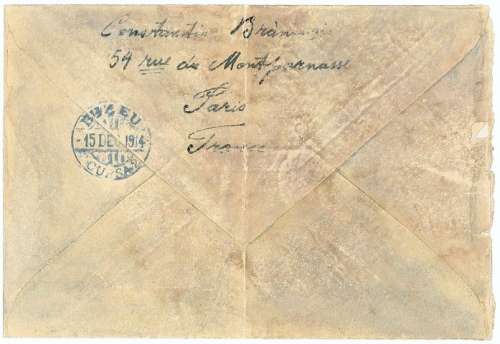 Constantin Brâncuși
54 rue du Montparnasse
Paris
France
BUZEU
15 DEC 1914